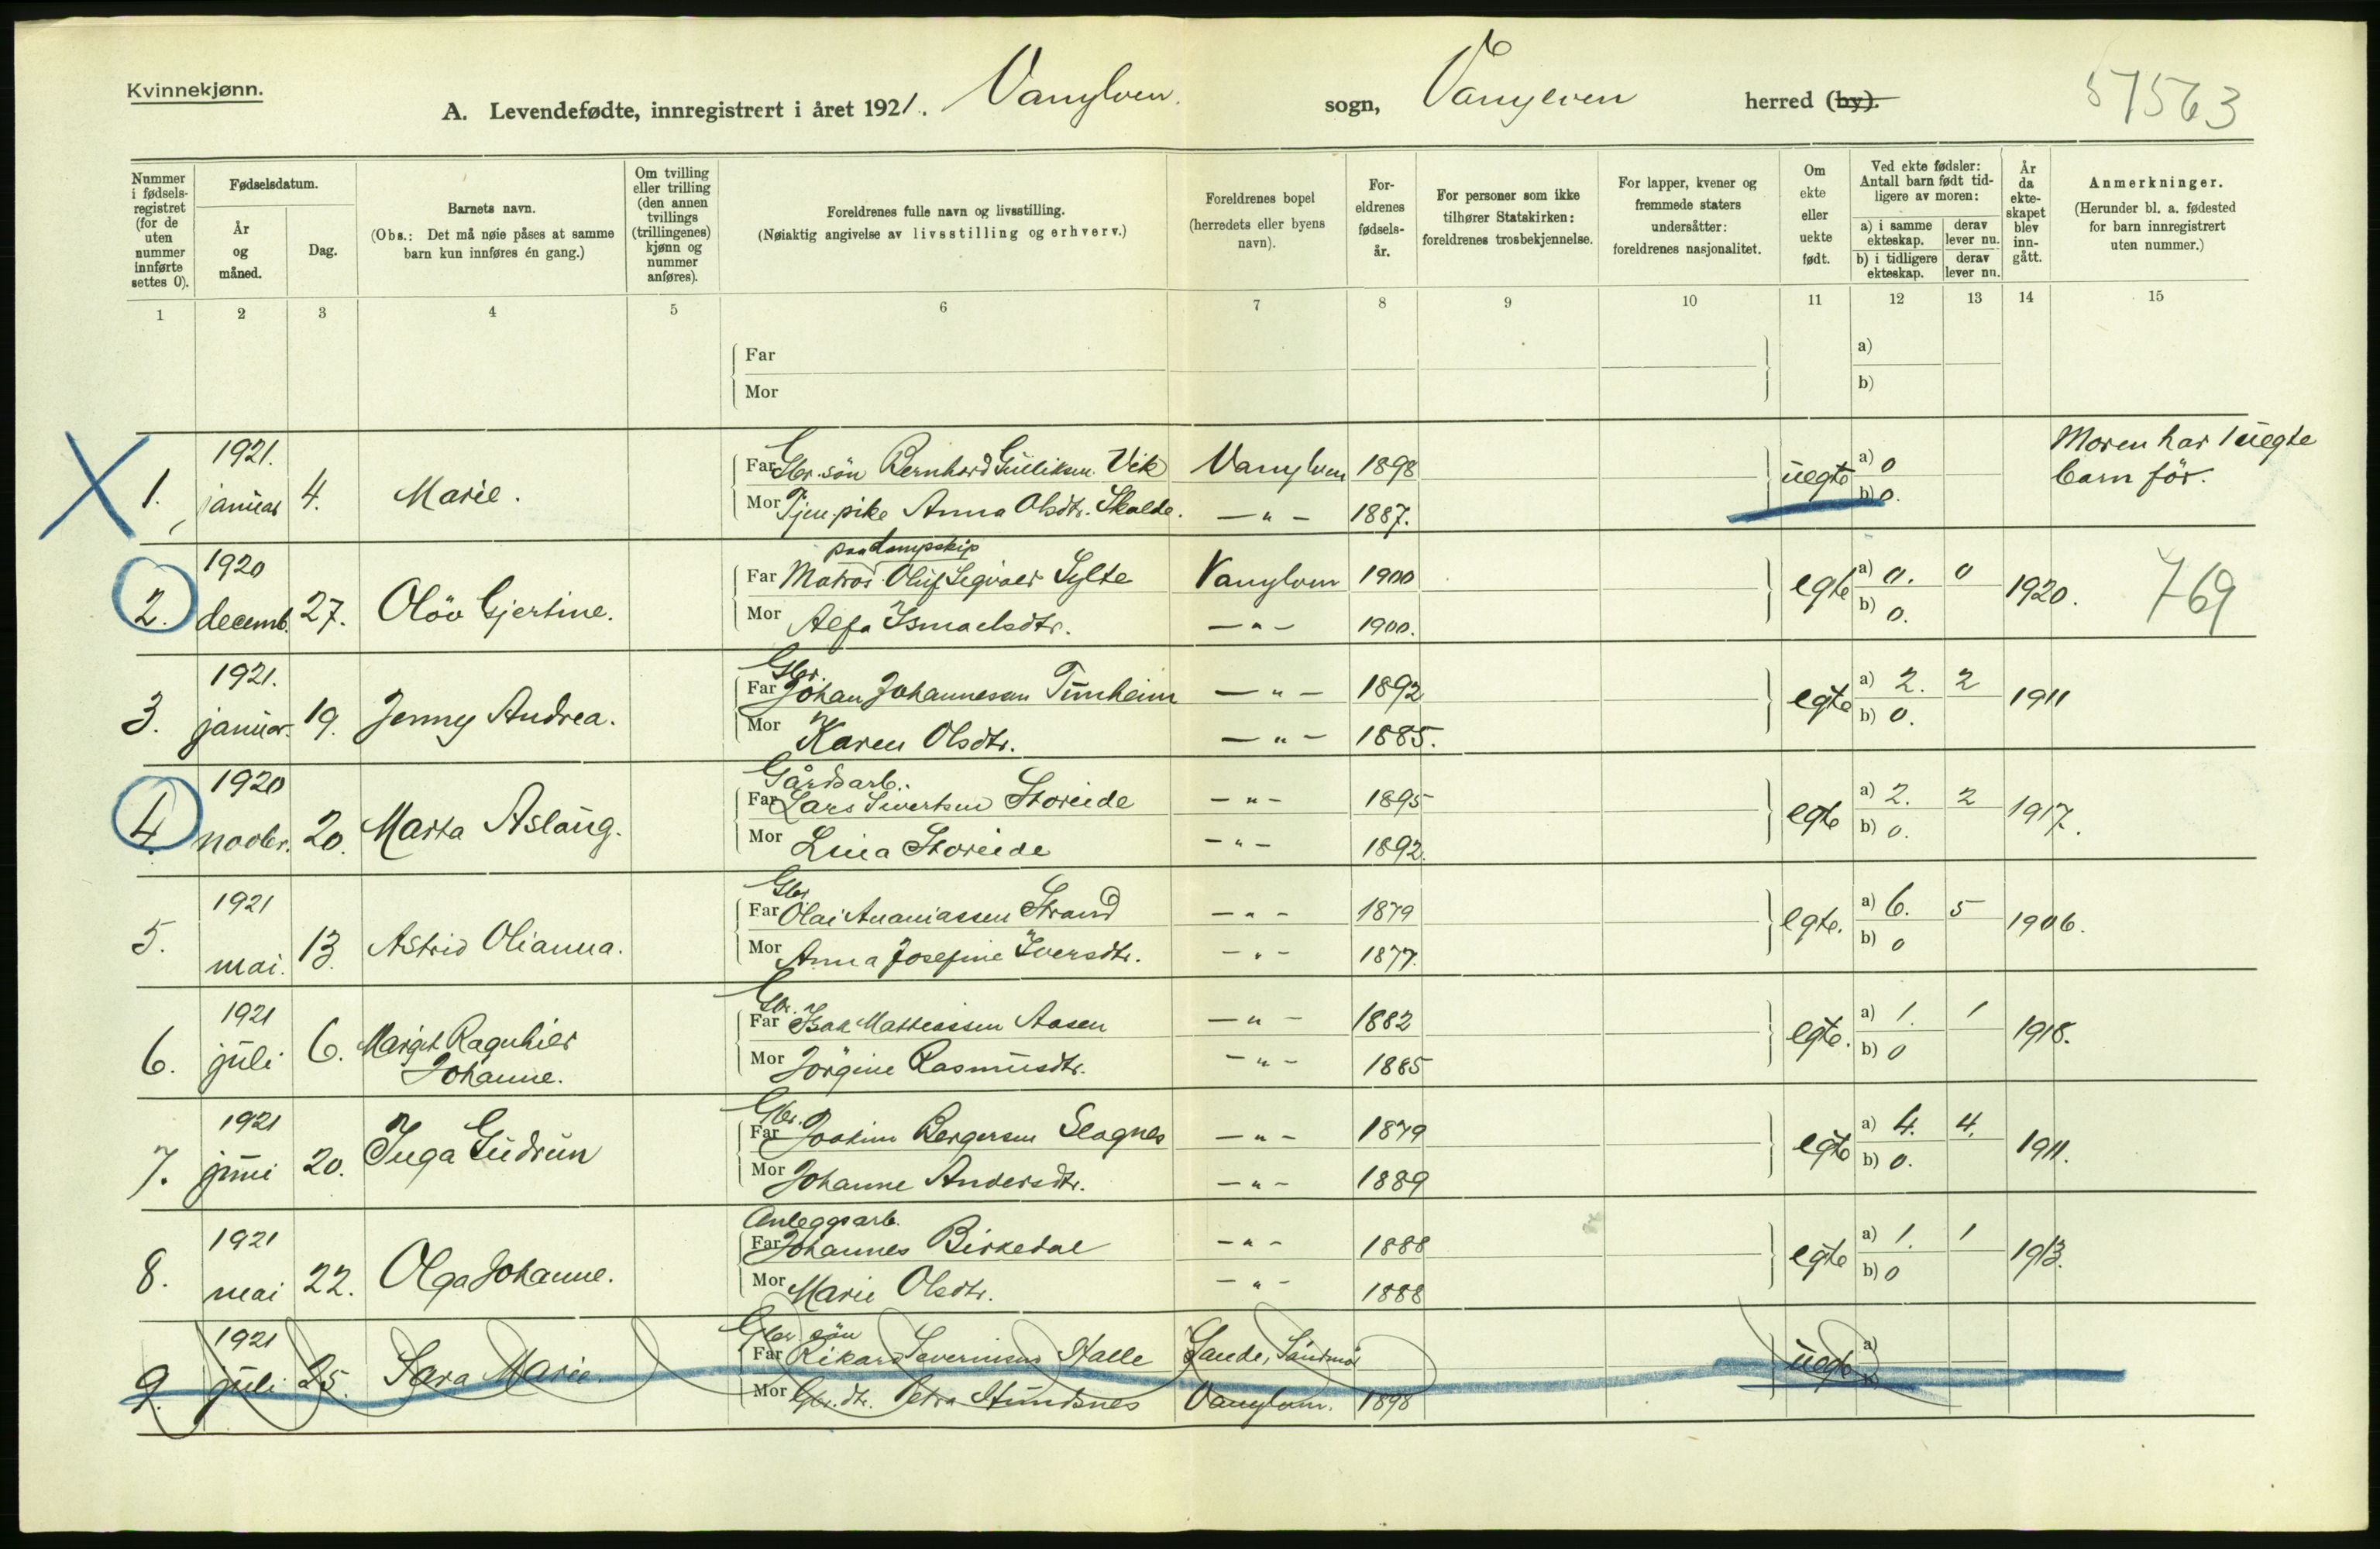 Kvinnekjønn.
A. Levendefødte, innregistrert i året 1921. Vanylven. sogn, Vanylven herred (by).
57563
Nummer i fødselsregistret (for de uten nummer innførte settes 0).
Fødselsdatum.
År og måned.
Dag.
Barnets navn.
(Obs.: Det må nøie påses at samme barn kun innføres én gang.)
Om tvilling eller trilling (den annen tvillings (trillingenes) kjønn og nummer anføres).
Foreldrenes fulle navn og livsstilling.
(Nøiaktig angivelse av livsstilling og erhverv.)
Foreldrenes bopel (herredets eller byens navn).
Foreldrenes fødselsår.
For personer som ikke tilhører Statskirken: foreldrenes trosbekjennelse.
For lapper, kvener og fremmede staters undersåtter: foreldrenes nasjonalitet.
Om ekte eller uekte født.
Ved ekte fødsler: Antall barn født tidligere av moren:
a) i samme ekteskap. derav lever nu.
b) i tidligere ekteskap. derav lever nu.
År da ekteskapet blev inngått.
Anmerkninger.
(Herunder bl. a. fødested for barn innregistrert uten nummer.)
1 2 3 4 5 6 7 8 9 10 11 12 13 14 15
Far a)
Mor b)
1. 1921. januar 4. Marie.
Far Gbr. sön Bernhard Gulliksen Vik Vanylven 1898 uegte a) 0 Moren har 1 uegte barn för.
Mor Tjen.pike Anna Olsdtr. Skalde. —"— 1887. b) 0.
2. 1920 decemb. 27. Olöv Gjertine.
paa dampskip
Far Matros Oluf Sylte Vanylven 1900 egte a) 0. 0 1920. 769
Mor Alfa Ismaelsdtr. —"— 1900. b) 0.
3. 1921. januar. 19. Jenny Andrea.
Gbr.
Far Johan Johannesen Tunheim —"— 1892 egte a) 2. 2 1911
Mor Karen Olsdtr. —"— 1885. b) 0.
4. 1920 novbr. 20. Marta Aslaug.
Gårdsarb.
Far Lars Sivertsen Storeide —"— 1895 egte a) 2. 2 1917.
Mor Lina Storeide —"— 1892. b) 0.
5. 1921 mai. 13. Astrid Olianna.
Gbr.
Far Olai Ananiassen Strand —"— 1879 egte. a) 6. 5 1906.
Mor Anna Josefine Iversdtr. —"— 1877. b) 0
6. 1921 juli 6. Margit Ragnhild Johanne.
Gbr.
Far Isak Matteassen Aasen —"— 1882 egte. a) 1. 1 1918.
Mor Jörgine Rasmusdtr. —"— 1885 b) 0
7. 1921 juni 20. Inga Gudrun
Gbr.
Far Joakim Bergersen Slagnes —"— 1879 egte a) 4. 4. 1911.
Mor Johanne Andersdtr. —"— 1889 b) 0.
8. 1921 mai 22. Olga Johanne.
Anleggsarb.
Far Johannes Birkedal —"— 1888 egte a) 1. 1 1913.
Mor Marie Olsdtr. —"— 1888 b) 0
9. 1921 juli 25. Sara Marie.
Gbr. sön
Far Rikard Severinsen Halle Sande, Söndmör uegte a)
Mor Gbr. dtr. Petra Hundsnes Vanylven. 1898